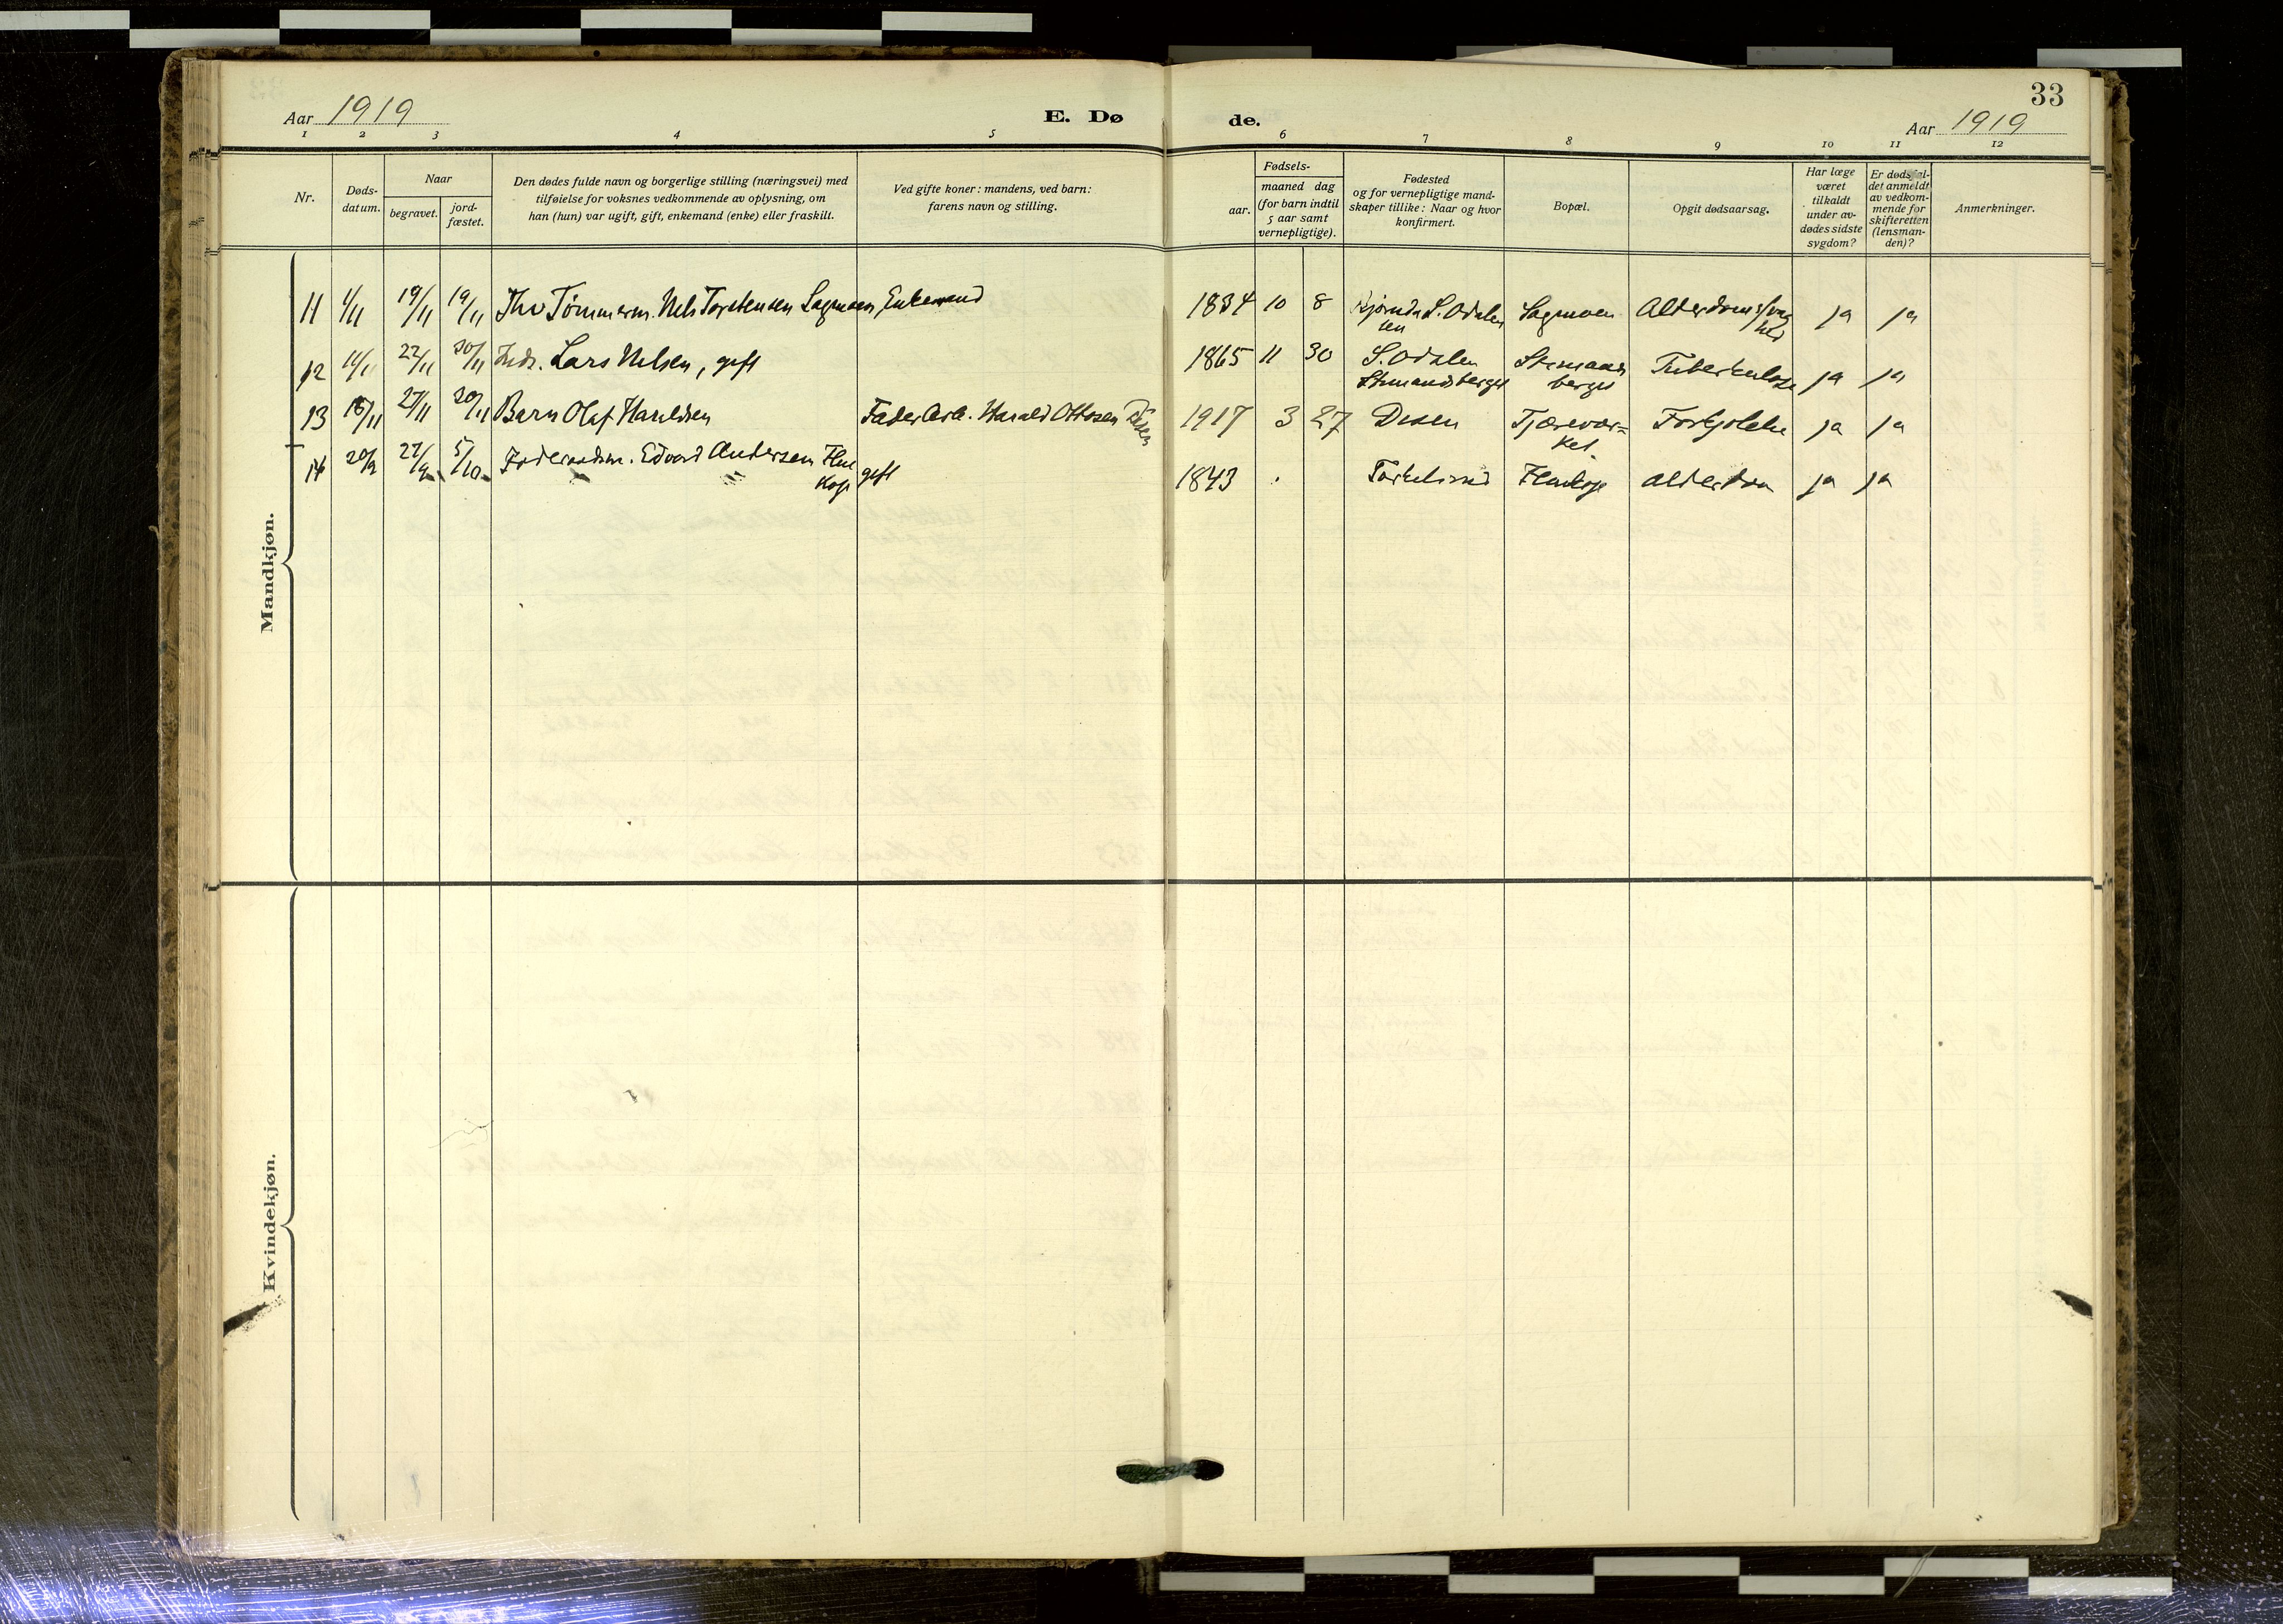 33
Aar 1919 E. Døde. Aar 1919
1 2 3 4 5 6 7 8 9 10 11 12
Nr.
Døds-
datum.
Naar
begravet.
jord-
fæstet.
Den dødes fulde navn og borgerlige stilling (næringsvei) med
tilføielse for voksnes vedkommende av oplysning, om
han (hun) var ugift, gift, enkemand (enke) eller fraskilt.
Ved gifte koner: mandens, ved barn:
farens navn og stilling.
Fødsels-
aar.
maaned dag
(for barn indtil
5 aar samt
vernepligtige).
Fødested
og for vernepligtige mand-
skaper tillike: Naar og hvor
konfirmert.
Bopæl.
Opgit dødsaarsag.
Har læge
været
tilkaldt
under av-
dødes sidste
sygdom?
Er dødsfal-
det anmeldt
av vedkom-
mende for
skifteretten
(lensman-
den)?
Anmerkninger.
Mandkjøn.
11 4/11 19/11 19/11 Tømmerm. Nels Torstensen Sagmoen, Enkemand 1834 10 8 S. Odalen Sagmoen Alderdomssvaghed ja ja
12 22/11 20/11 Inds. Lars Nelsen, gift 1865 11 30 S. Odalen Tuberkulose ja ja
13 16/11 27/11 20/11 Barn Olaf Haraldsen Fader Arb. Harald Ottosen Disen 1917 3 27 Disen Tjærevær=
ket. Forkjølelse ja ja
14 20/9 27/9 5/10 Edvard Andersen gift 1843 Alderdom ja ja
Kvindekjøn.